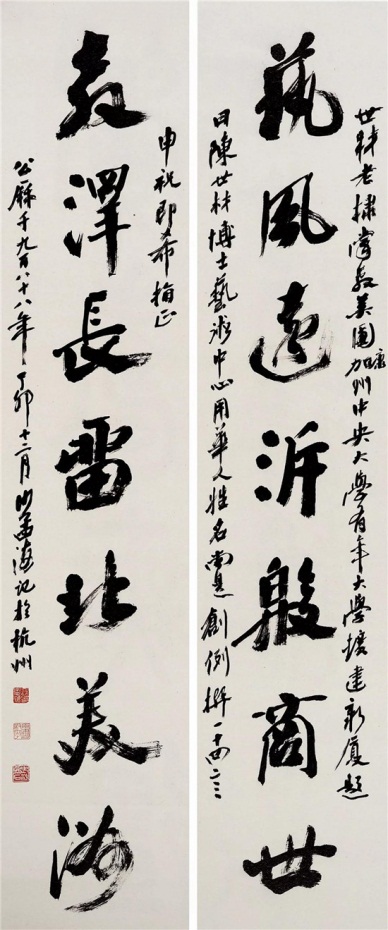 藝風遠泝殷商世
教澤長畱北美洲
世材老棣掌教美國康加州中央大學有年大學擴建新廈題
曰陳世材博士藝術中心用華人姓名尚是創例撰十四言
申祝即希指正
公曆千九百八十八年丁卯十二月沙孟海記於杭州